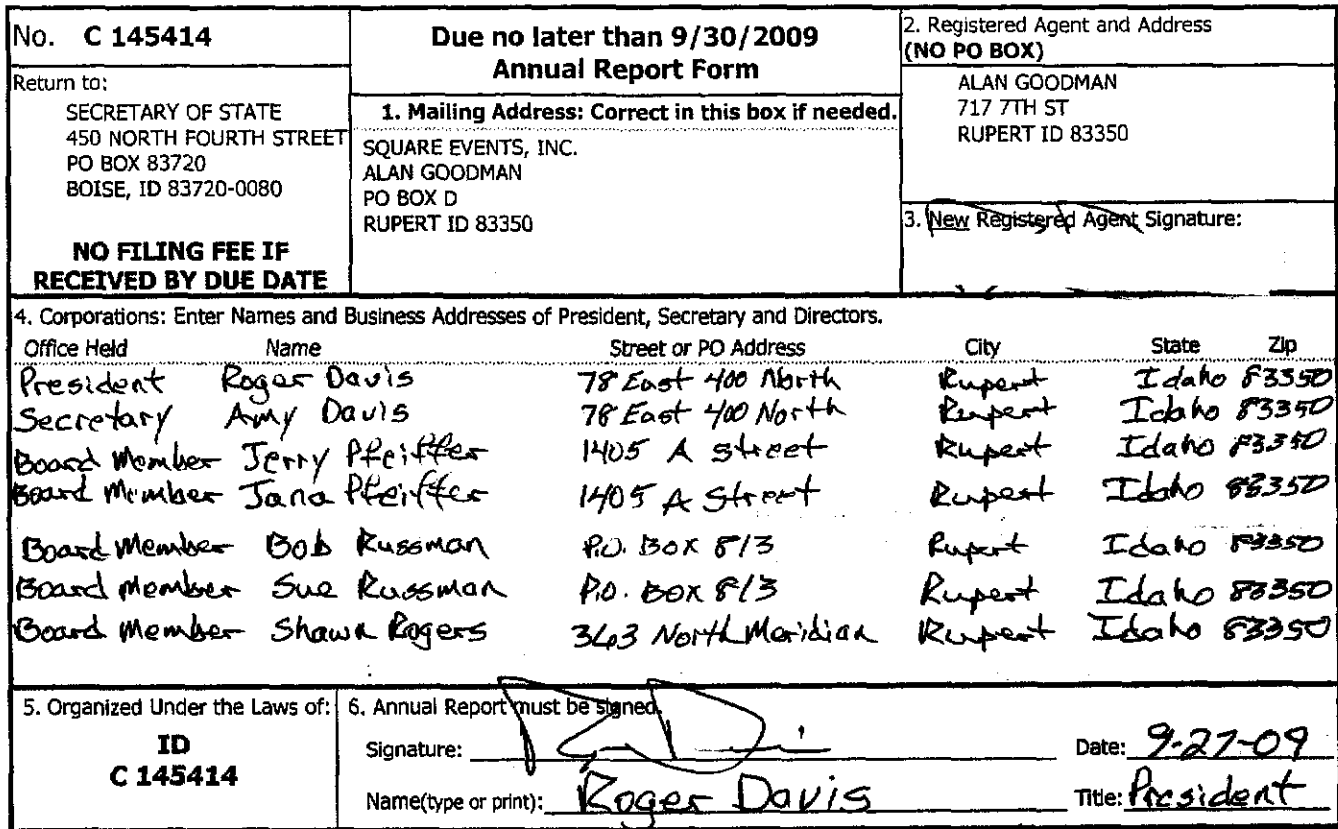 No. C 145414
Return to:
SECRETARY OF STATE
450 NORTH FOURTH STREET
PO BOX 83720
BOISE, ID 83720-0080
NO FILING FEE IF
RECEIVED BY DUE DATE
Due no later than 9/30/2009
Annual Report Form
1. Mailing Address: Correct in this box if needed.
SQUARE EVENTS, INC.
ALAN GOODMAN
PO BOX D
RUPERT ID 83350
2. Registered Agent and Address
(NO PO BOX)
ALAN GOODMAN
717 7TH ST
RUPERT ID 83350
3. New Registered Agent Signature:
4. Corporations: Enter Names and Business Addresses of President, Secretary and Directors.
Office Held Name Street or PO Address City State Zip
President Roger Davis 78 East 400 North Rupert Idaho 83350
Secretary Amy Davis 78 East 400 North Rupert Idaho 83350
Board Member Jerry Pfeiffer 1405 A street Rupert Idaho 83350
Board Member Jana Pfeiffer 1405 A Street Rupert Idaho 83350
Board Member Bob Russman P.O. Box 813 Rupert Idaho 83350
Board Member Sue Russman P.O. Box 813 Rupert Idaho 83350
Board Member Shawn Rogers 363 North Meridian Rupert Idaho 83350
5. Organized Under the Laws of:
ID
C 145414
6. Annual Report must be signed.
Signature:
Date: 9-27-09
Name(type or print): Roger Davis
Title: President